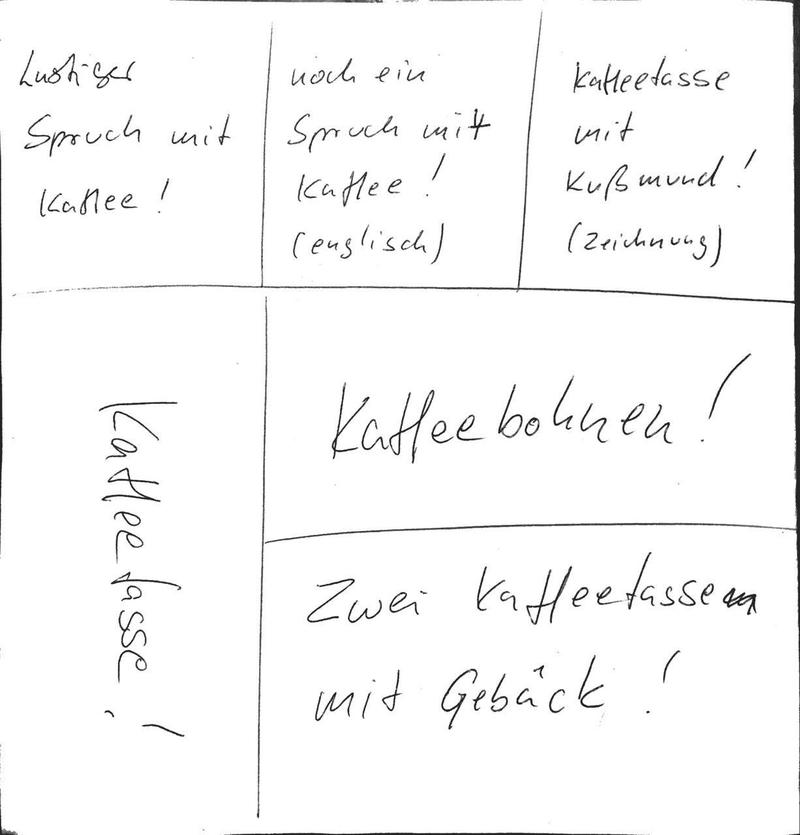 Lustiger
Spruch mit
Kaffee!
noch ein
Spruch mit
Kaffee!
(englisch)
Kaffeetasse
mit
Kußmund!
(Zeichnung)
Kaffeetasse!
Kaffeebohnen!
Zwei Kaffeetassen
mit Gebäck!